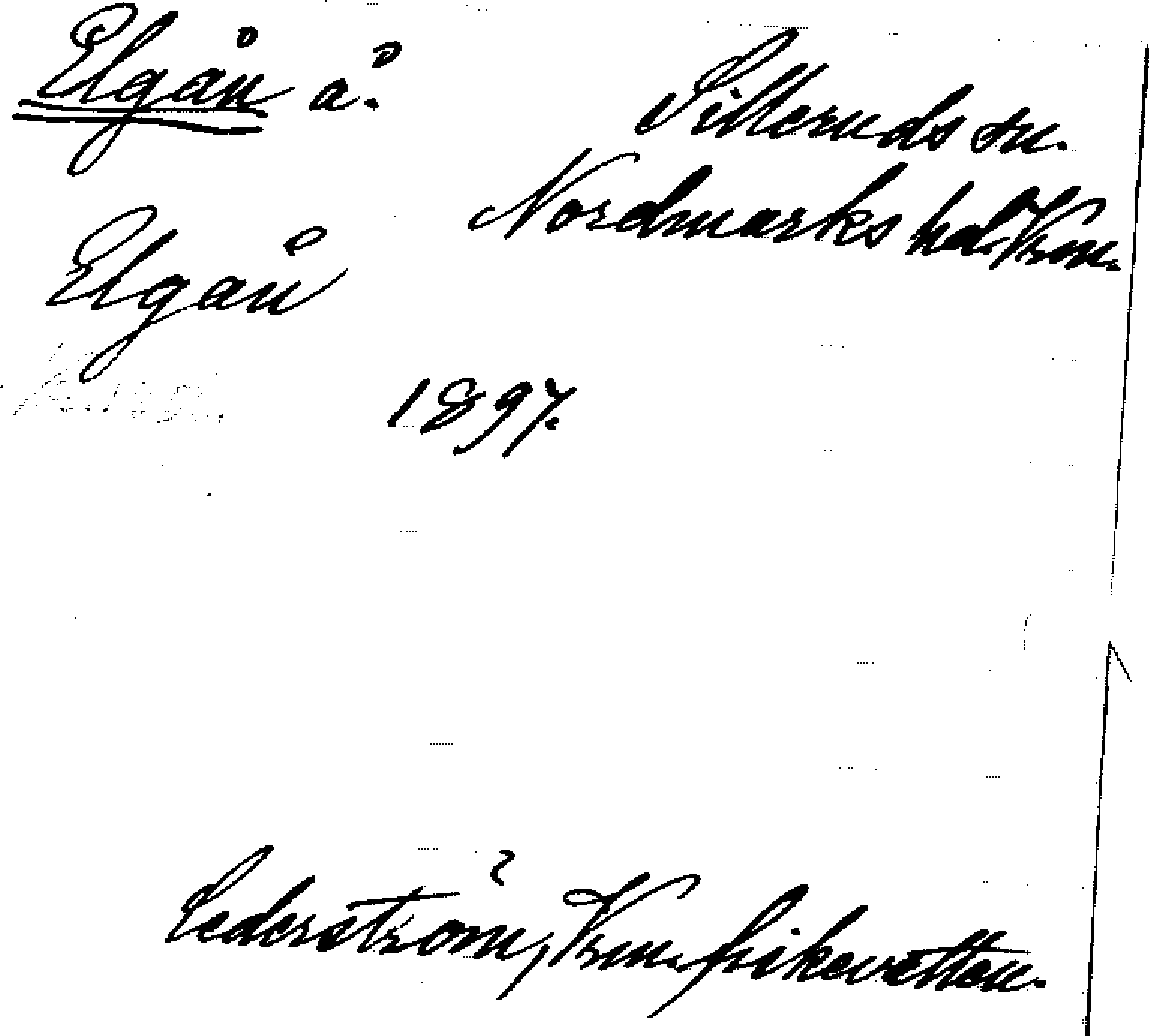 Elgån å.
Silleruds sn.
Nordmarks hd. Vrm.
Elgån
1897.
Cederström, Vrm. fiskevatten.